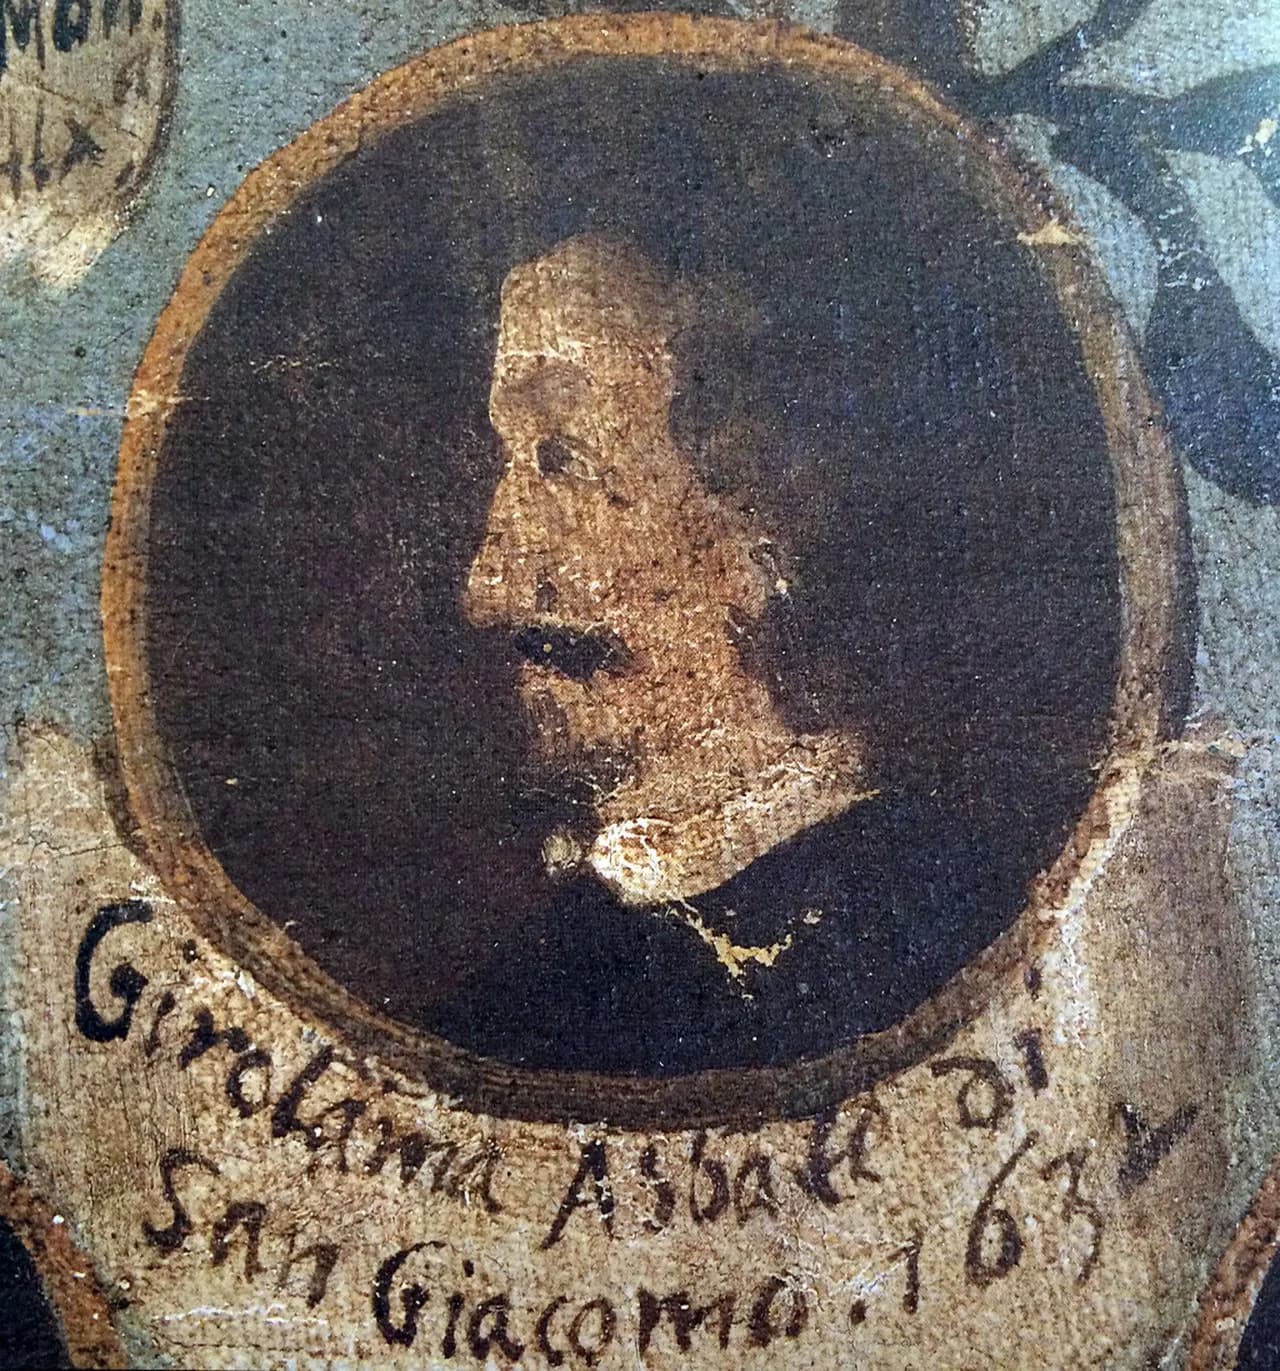 Girolama Asbate di
San Giacomo. 1632